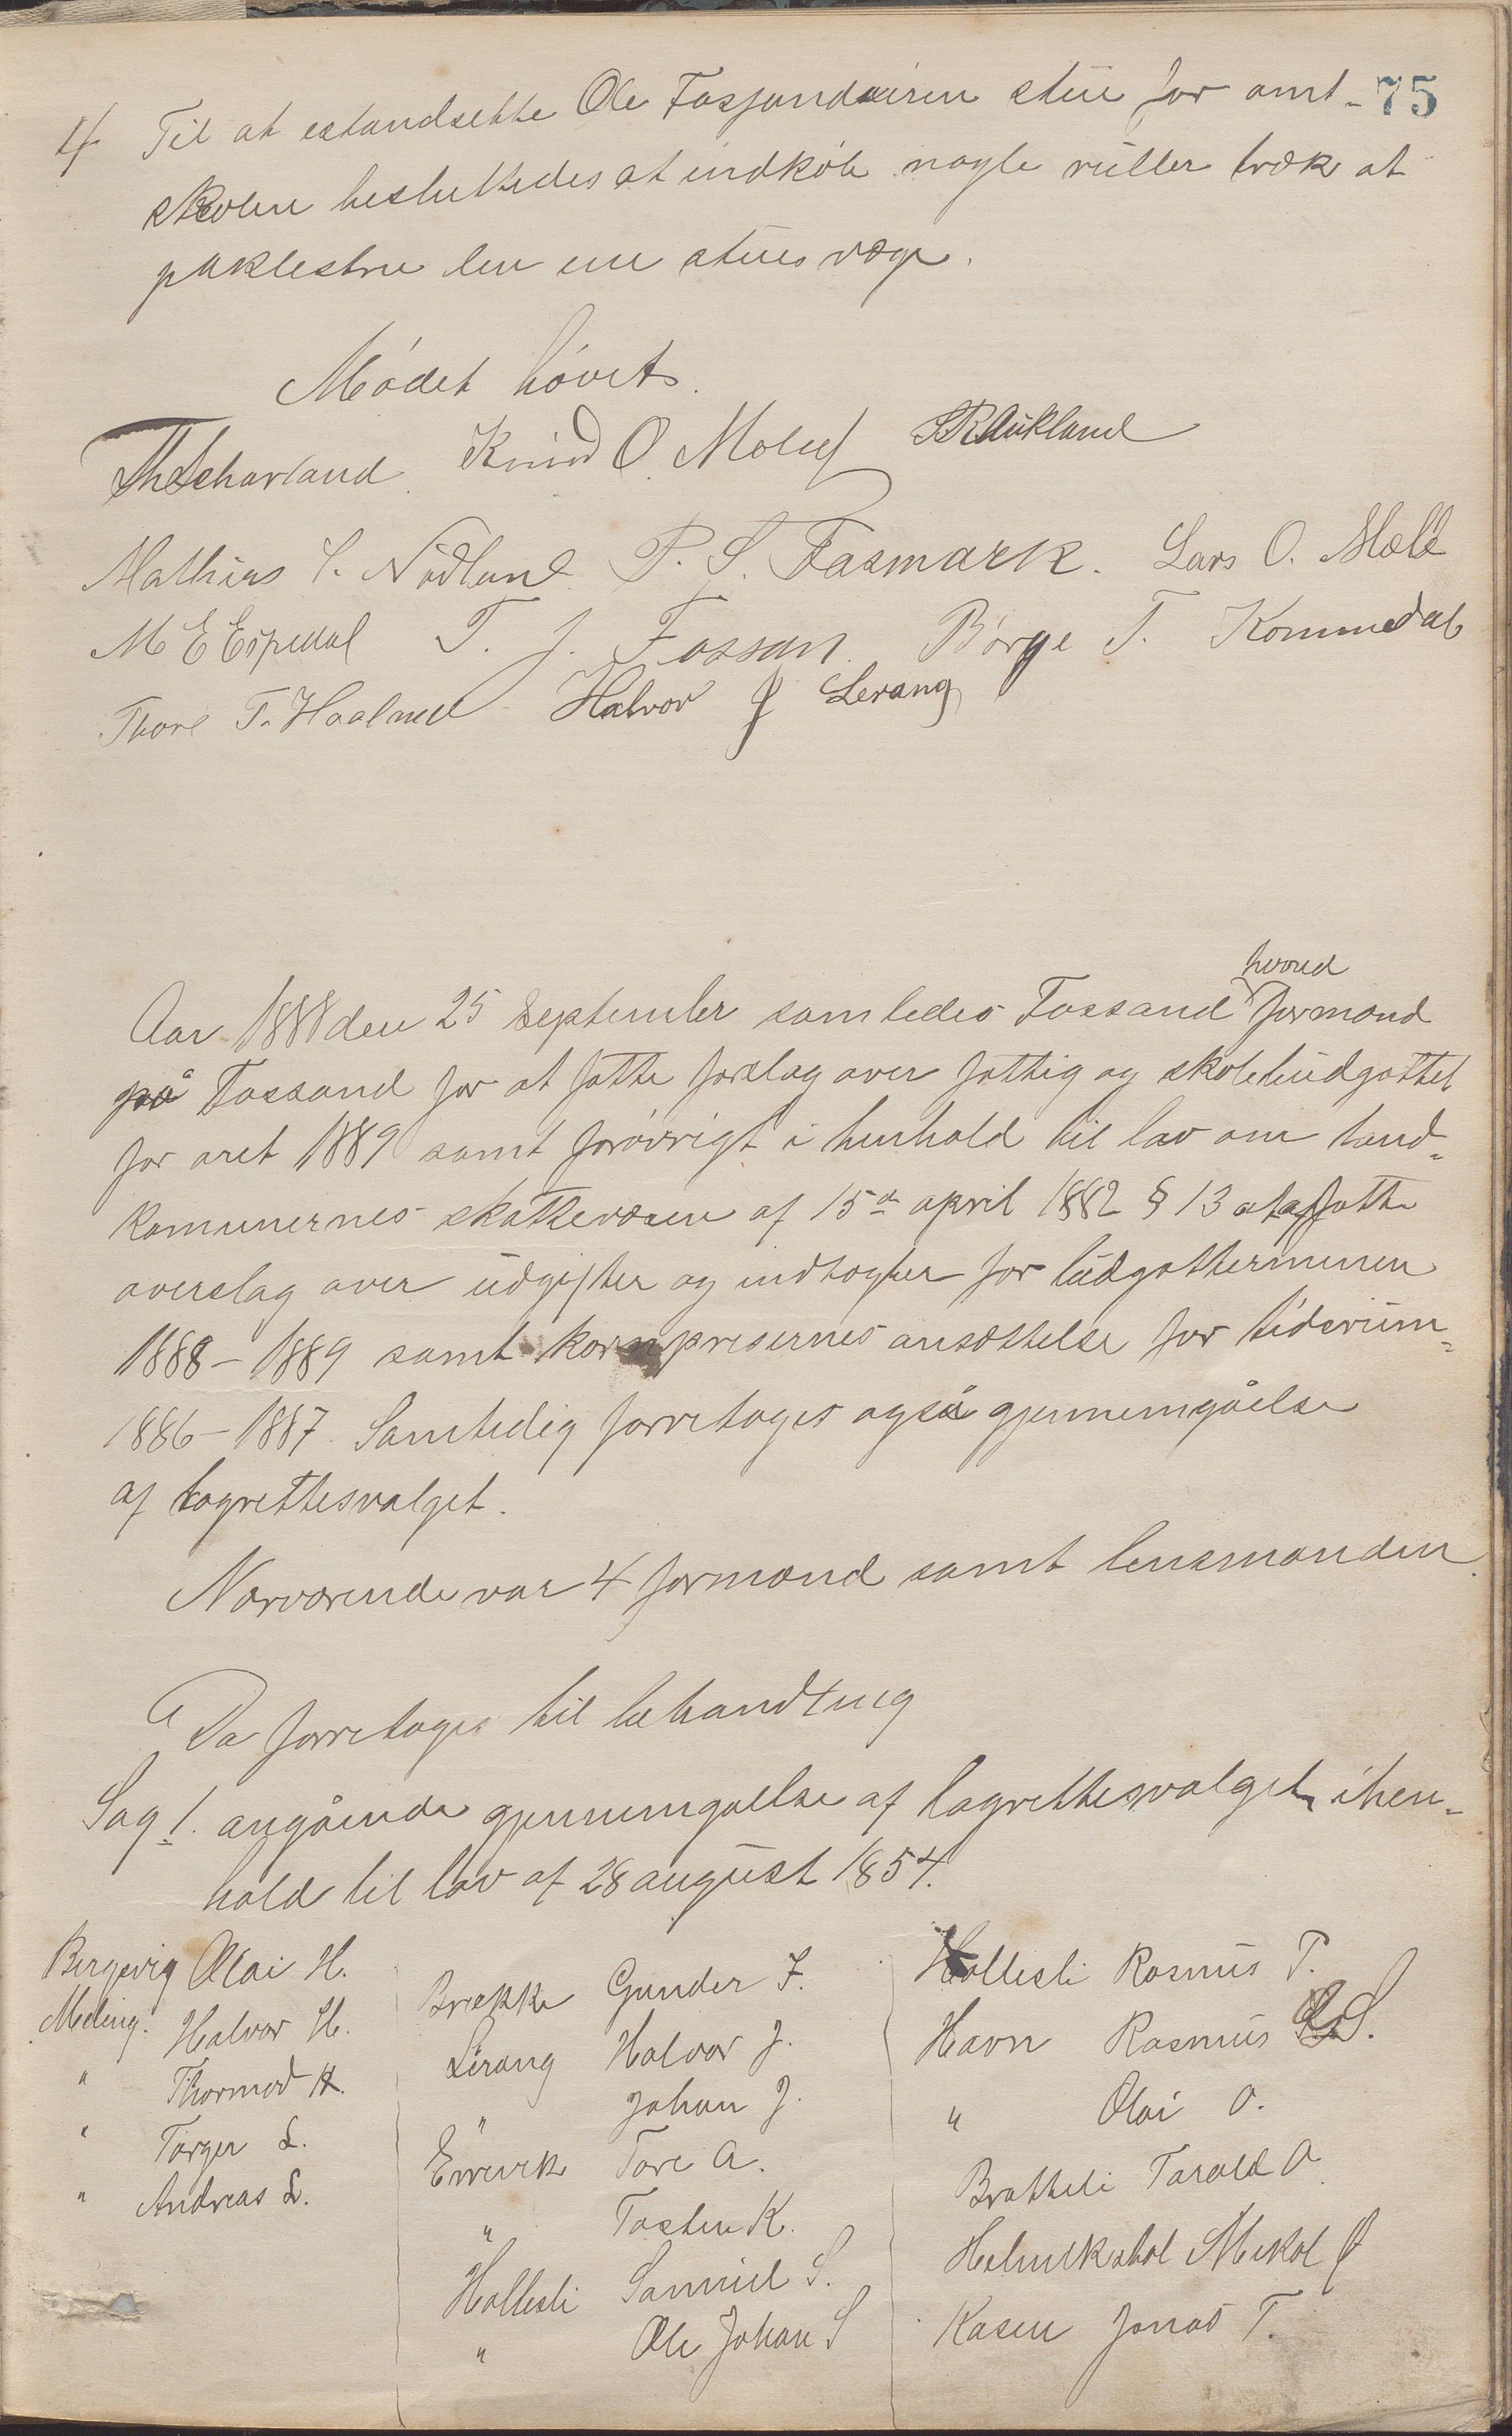 75
4 Til at istandsette Ole Fossandviren stue for amt-
skolen besluttedes at indkøbe nogle ruller træk at
paklistre den ene stues væge.
Mødet hævet.
Knud O. Molid SRAukland
Mathias S. Nødland P. S. Fasmark. Lars O. Mæle
M E Espedal T. J. Fossan Børge T. Kommedal
Thore T. Haaland Halvor J Lerang
hvored
Aar 1888 den 25 September samledes Fossand formænd
på Fossand for at fatte forslag over fattig og skolebudgettet
for aret 1889 samt forøvrigt i henhold til lov om land-
komunernes skattevæsen af 15de april 1882 § 13 at affatte
overslag over udgifter og indtægter for budgetterminen
1888-1889 samt kornprisernes ansættelse for tidsrum-
1886-1887. Samtidig foretages også gjennemgåelse
af lagrettesvalget.
Nærværende var 4 formænd samt lensmanden.
Da foretages til behandling
Sag 1. angående gjennemgåelse af lagrettesvalget ihen-
hold til lov af 28 august 1854.
Bergevig Olai H.
Meling. Halvor H.
" Thormod H.
" Torger L.
" Andreas L.
Brække Gunder F.
Lerang Halvor J.
" Johan J.
Errevik Tore A.
" Tosten K.
Hollesli Samuel S.
" Ole Johan S
Hollesli Rasmus T.
Havn Rasmus S.
" Olai O.
Bratteli Tarald O
Helmikstøl Mikal
Kasen Jonas T.